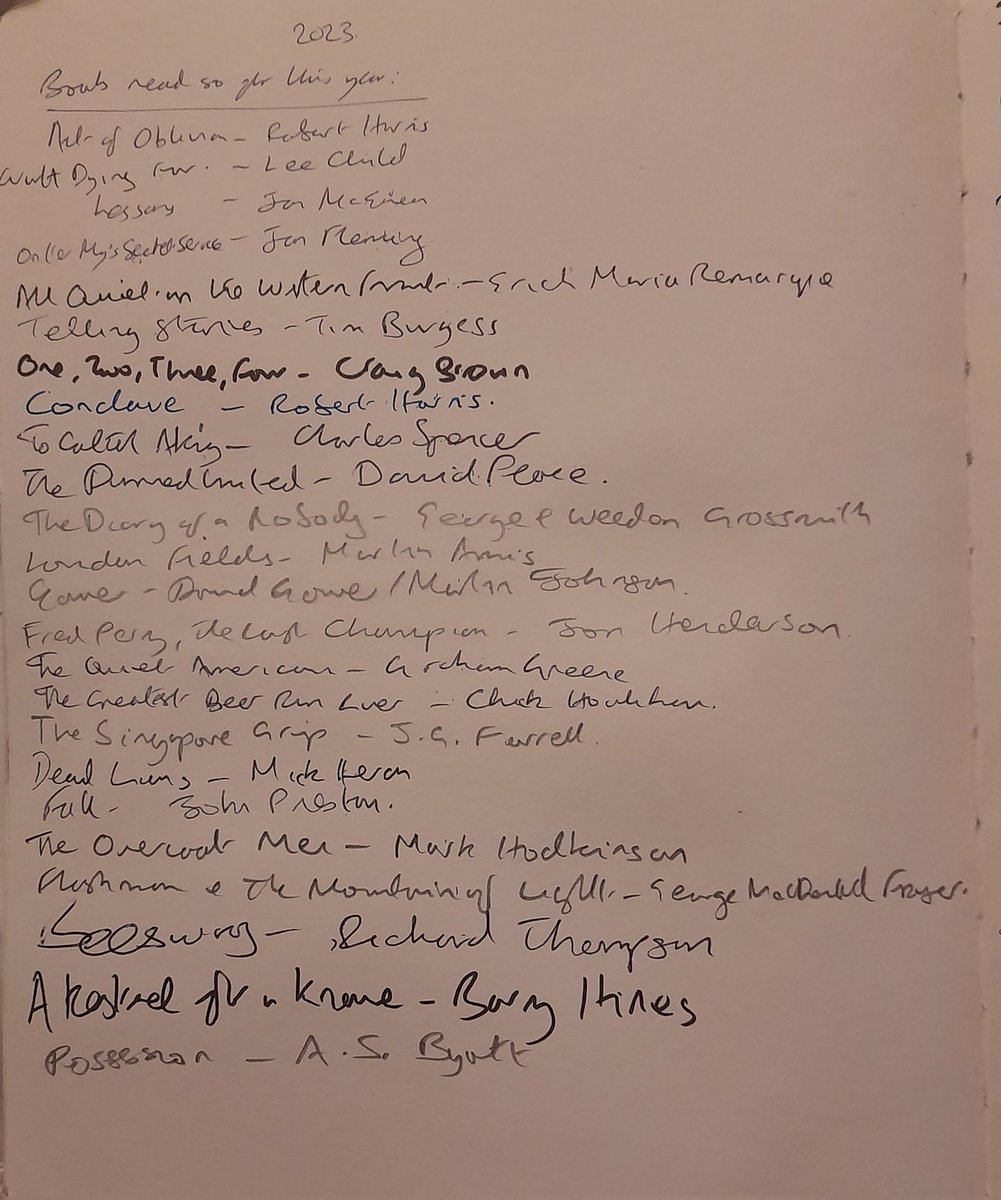 2023.
Books read so far this year:
Act of Oblivion - Robert Harris
Worth Dying For. - Lee Child
Lessons - Ian McEwan
On Her Maj's Secret Service - Ian Fleming
All Quiet on the Western Front - Erich Maria Remarque
Telling Stories - Tim Burgess
One, Two, Three, Four - Craig Brown
Conclave - Robert Harris.
To Catch A King - Charles Spencer
The Damned United - David Peace.
The Diary of a Nobody - George & Weedon Grossmith
London Fields - Martin Amis
Gower - David Gower / Martin Johnson.
Fred Perry, The Last Champion - Jon Henderson.
The Quiet American - Graham Greene
The Greatest Beer Run Ever - Chick Donohue.
The Singapore Grip - J.G. Farrell.
Dead Lions - Mick Heron
Fall - John Preston.
The Overcoat Men - Mark Hodkinson
Flashman & The Mountain of Light - George MacDonald Fraser.
Beeswing - Richard Thompson
A Kestrel for a Knave - Barry Hines
Possession - A.S. Byatt